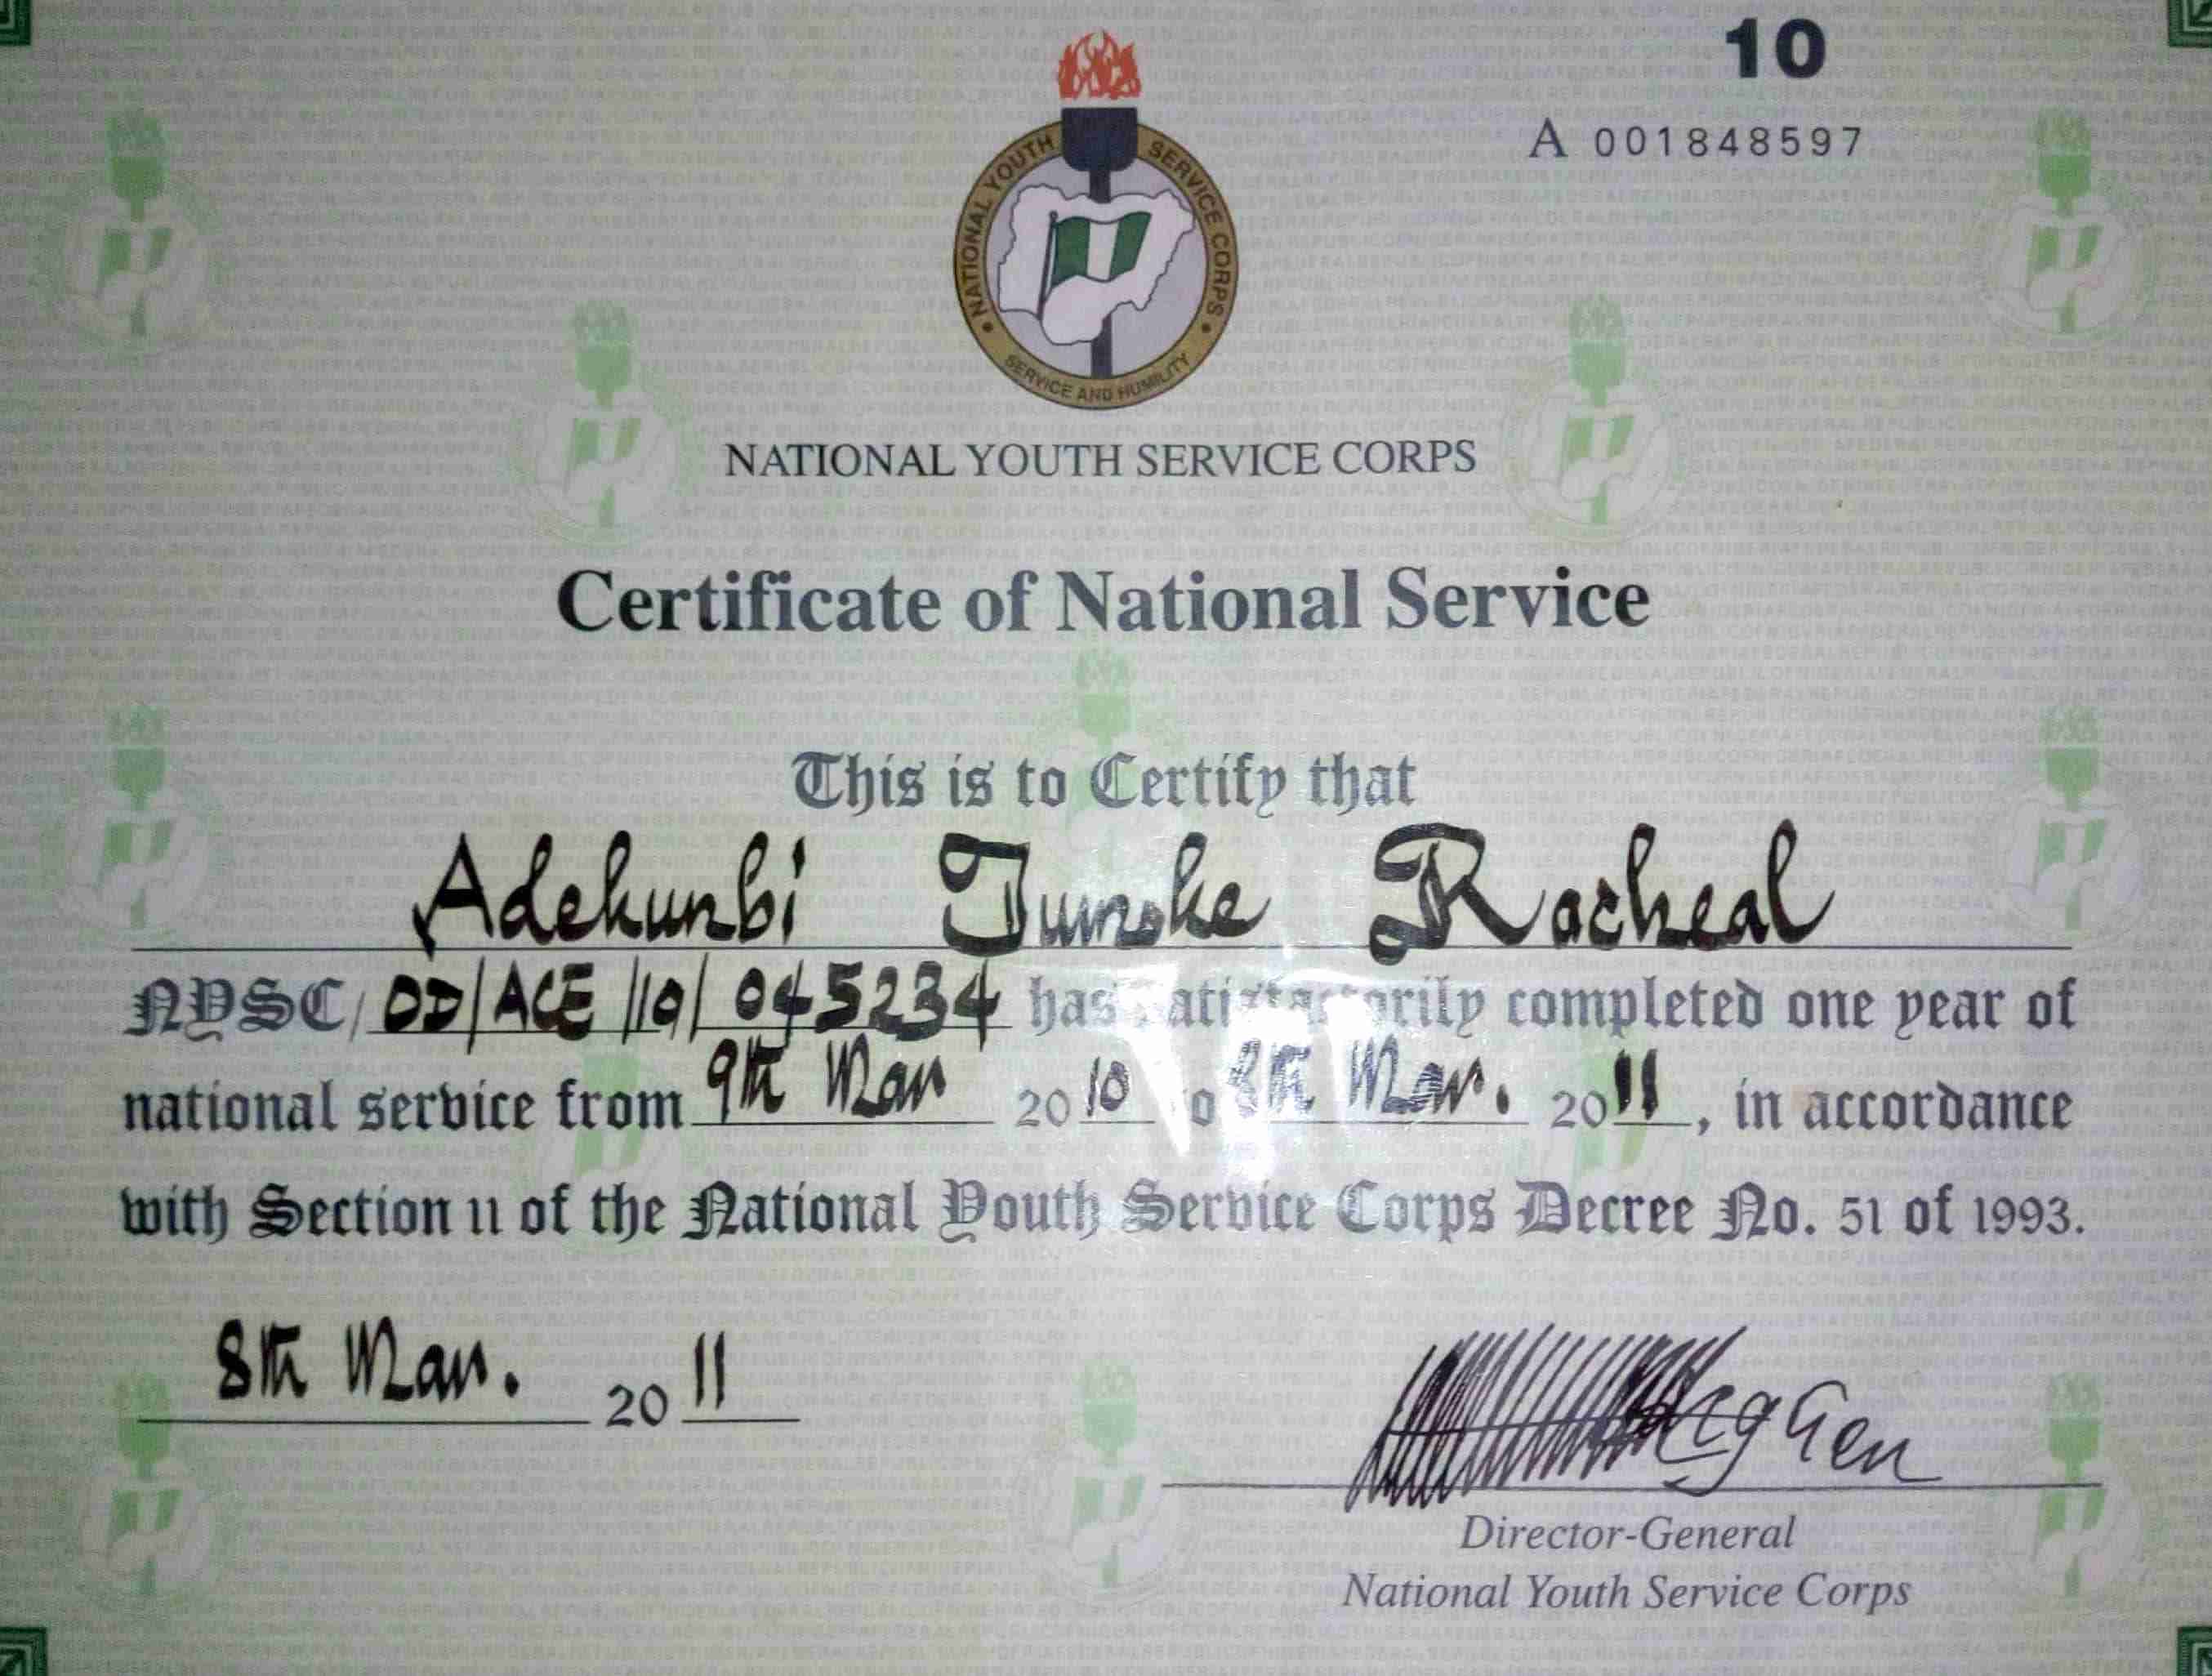 10
A 001848597
NATIONAL YOUTH SERVICE CORPS
SERVICE AND HUMILITY
NATIONAL YOUTH SERVICE CORPS
Certificate of National Service
This is to Certify that
Adekunbi Racheal
NYSC/ OD/ACE/10/045234 has satisfactorily completed one year of
national service from 9th Mar 2010 to 8th Mar. 2011, in accordance
with Section 11 of the National Youth Service Corps Decree No. 51 of 1993.
8th Mar. 2011
Director-General
National Youth Service Corps